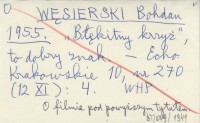 WĘSIERSKI Bohdan
1955. „Błękitny krzyż",
to dobry znak. – Echo
Krakowskie 10, nr 270
(12 XI): 4. WHS
O filmie pod powyższym tytułem